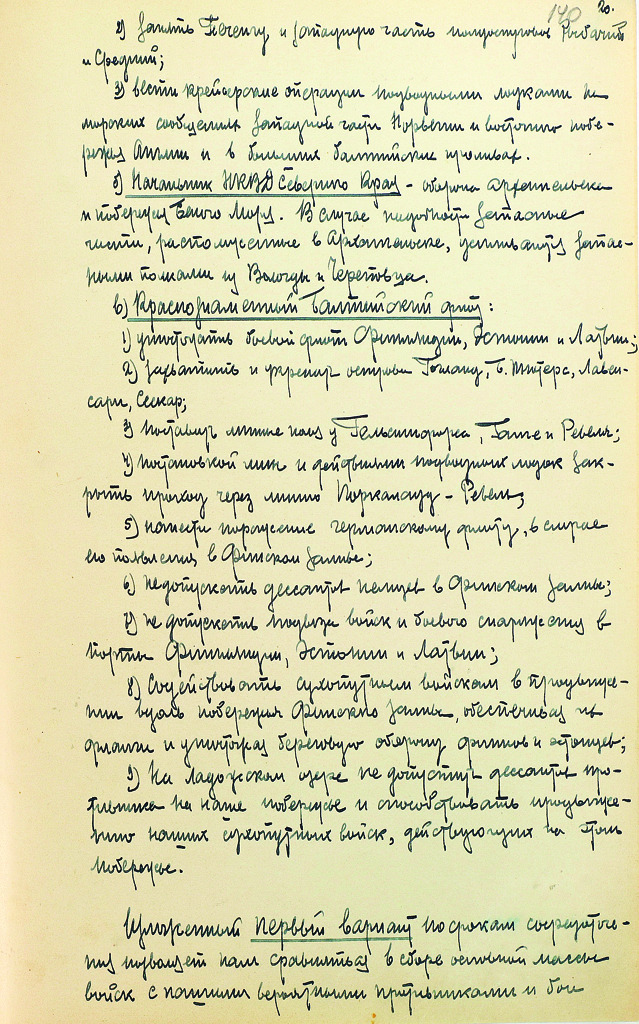 140 20.
2) занять Печенгу и западную часть полуостровов Рыбачий
и Средний;
3) вести крейсерские операции подводными лодками на
морских сообщениях западной части Норвегии и восточного побе-
режья Англии и в больших балтийских проливах.
б) Начальник НКВД Северного Края - оборона Архангельска
и побережья Белого Моря. В случае надобности запасные
части, расположенные в Архангельске, усиливаются запас-
ными полками из Вологды и Череповца.
в) Краснознаменный Балтийский флот:
1) уничтожить боевой флот Финляндии, Эстонии и Латвии;
2) захватить и укрепить острова Гогланд, Б. Тютерс, Лавен-
сари, Сескар;
3) поставить минные поля у Гельсингфорса, Ганге и Ревеля;
4) постановкой мин и действиями подводных лодок зак-
рыть проход через линию Порккалауд - Ревель;
5) нанести поражение германскому флоту, в случае
его появления в Финском заливе;
6) не допускать десантов немцев в Финском заливе;
7) не допускать подвоза войск и боевого снаряжения в
порты Финляндии, Эстонии и Латвии;
8) Содействовать сухопутным войскам в продвиже-
нии вдоль побережья Финского залива, обеспечивая их
фланги и уничтожая береговую оборону финнов и эстонцев;
9) На Ладожском озере не допустить десантов про-
тивника на наше побережье и способствовать продвиже-
нию наших сухопутных войск, действующих на этом
побережье.
Изложенный первый вариант по срокам сосредоточе-
ния позволяет нам сравняться в сборе основной массы
войск с нашими вероятными противниками и бои